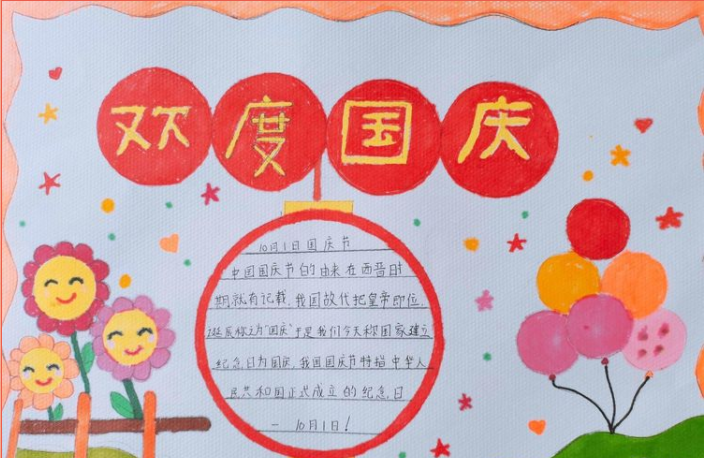 欢度国庆
10月1日国庆节
中国国庆节的由来在西晋时
期就有记载,我国故代把皇帝即位、
诞辰称为"国庆"于是我们今天称国家建立
纪念日为国庆,我国国庆节特指中华人
民共和国正式成立的纪念日
— 10月1日!